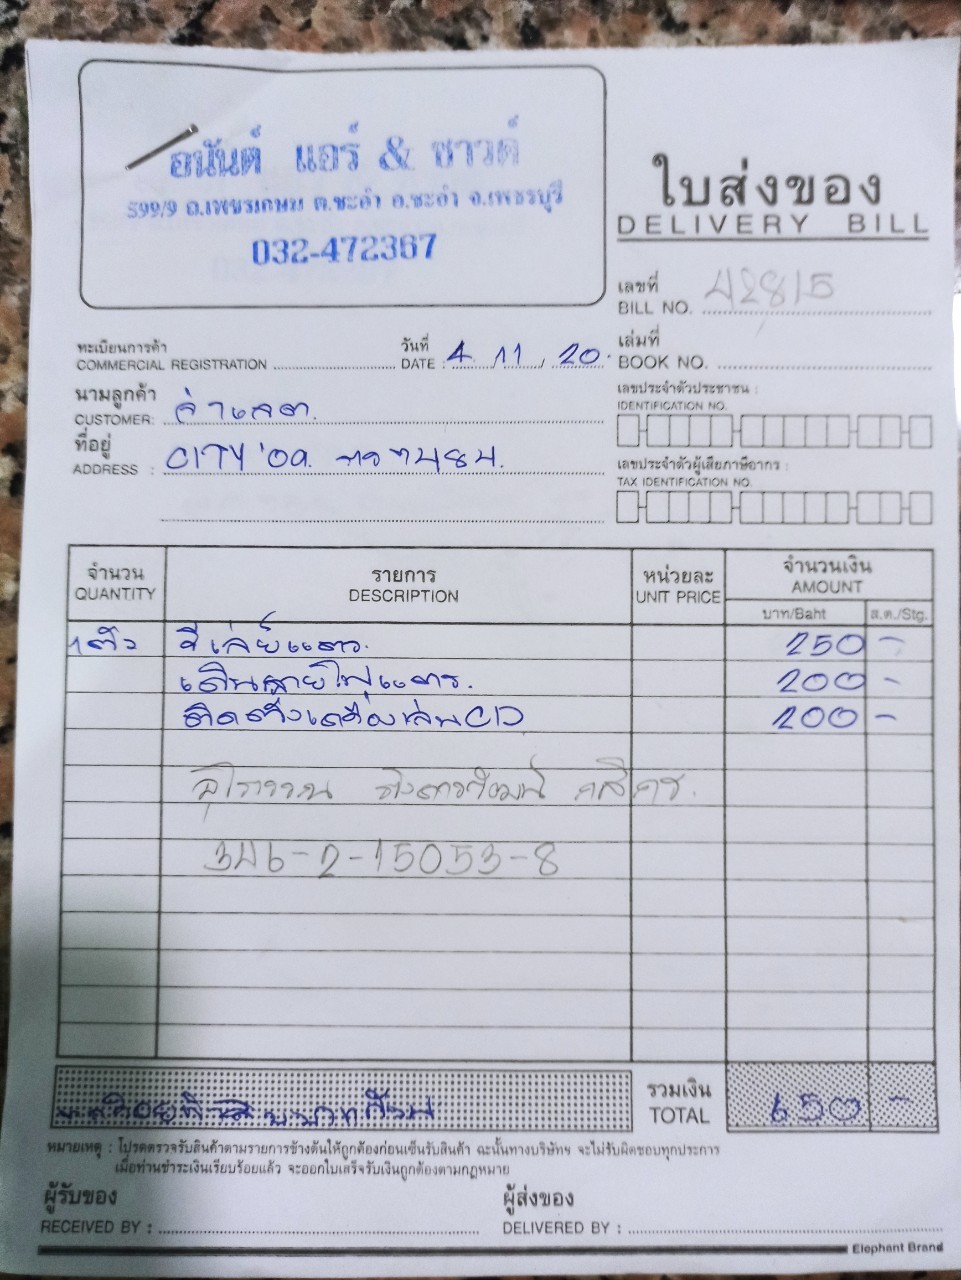 อนันต์ แอร์ & ซาวด์
599/9 ถ.เพชรเกษม ต.ชะอำ อ.ชะอำ จ.เพชรบุรี
032-472367
ใบส่งของ
DELIVERY BILL
เลขที่
BILL NO. 42815
ทะเบียนการค้า
COMMERCIAL REGISTRATION
วันที่
DATE : 4 / 11 / 20
เล่มที่
BOOK NO.
นามลูกค้า
CUSTOMER:
เลขประจำตัวประชาชน :
IDENTIFICATION NO.
ที่อยู่
ADDRESS : CITY
เลขประจำตัวผู้เสียภาษีอากร :
TAX IDENTIFICATION NO.
จำนวน รายการ หน่วยละ จำนวนเงิน
QUANTITY DESCRIPTION UNIT PRICE AMOUNT
บาท/Baht ส.ต./Stg.
1 ตัว รีเลย์ 250 -
เดินสายไฟ 200 -
ติดตั้งเครื่องเล่น CD 200 -
346-2-15053-8
หกร้อยห้าสิบบาทถ้วน
รวมเงิน
TOTAL 650 -
หมายเหตุ : โปรดตรวจรับสินค้าตามรายการข้างต้นให้ถูกต้องก่อนเซ็นรับสินค้า ฉะนั้นทางบริษัทฯ จะไม่รับผิดชอบทุกประการ
เมื่อท่านชำระเงินเรียบร้อยแล้ว จะออกใบเสร็จรับเงินถูกต้องตามกฎหมาย
ผู้รับของ
RECEIVED BY :
ผู้ส่งของ
DELIVERED BY :
Elephant Brand